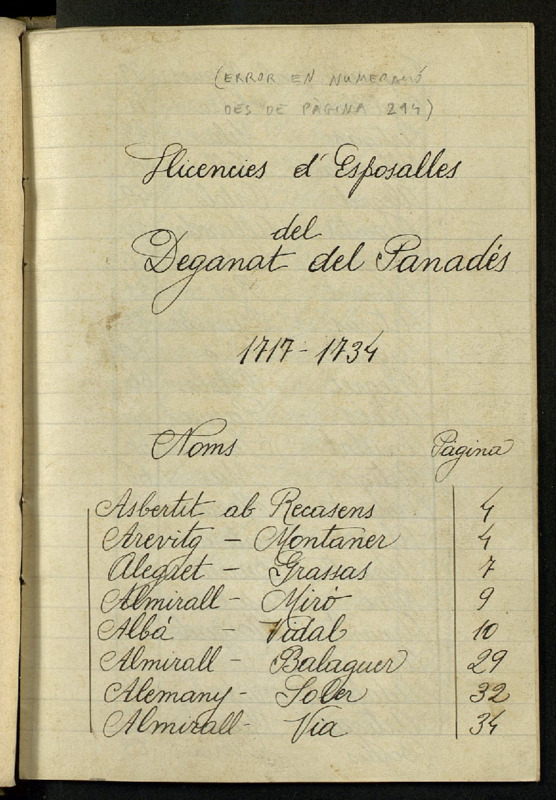 (ERROR EN NUMERACIÓ
DES DE PÀGINA 214)
Llicencies d'Esposalles
del
Deganat del Panadés
1717-1734
Noms Pàgina
Asbertit ab Recasens 4
Arevitg - Montaner 4
Alegret - Grassas 7
Almirall - Miró 9
Albá - Vidal 10
Almirall - Balaguer 29
Alemany - Soler 32
Almirall - Via 34